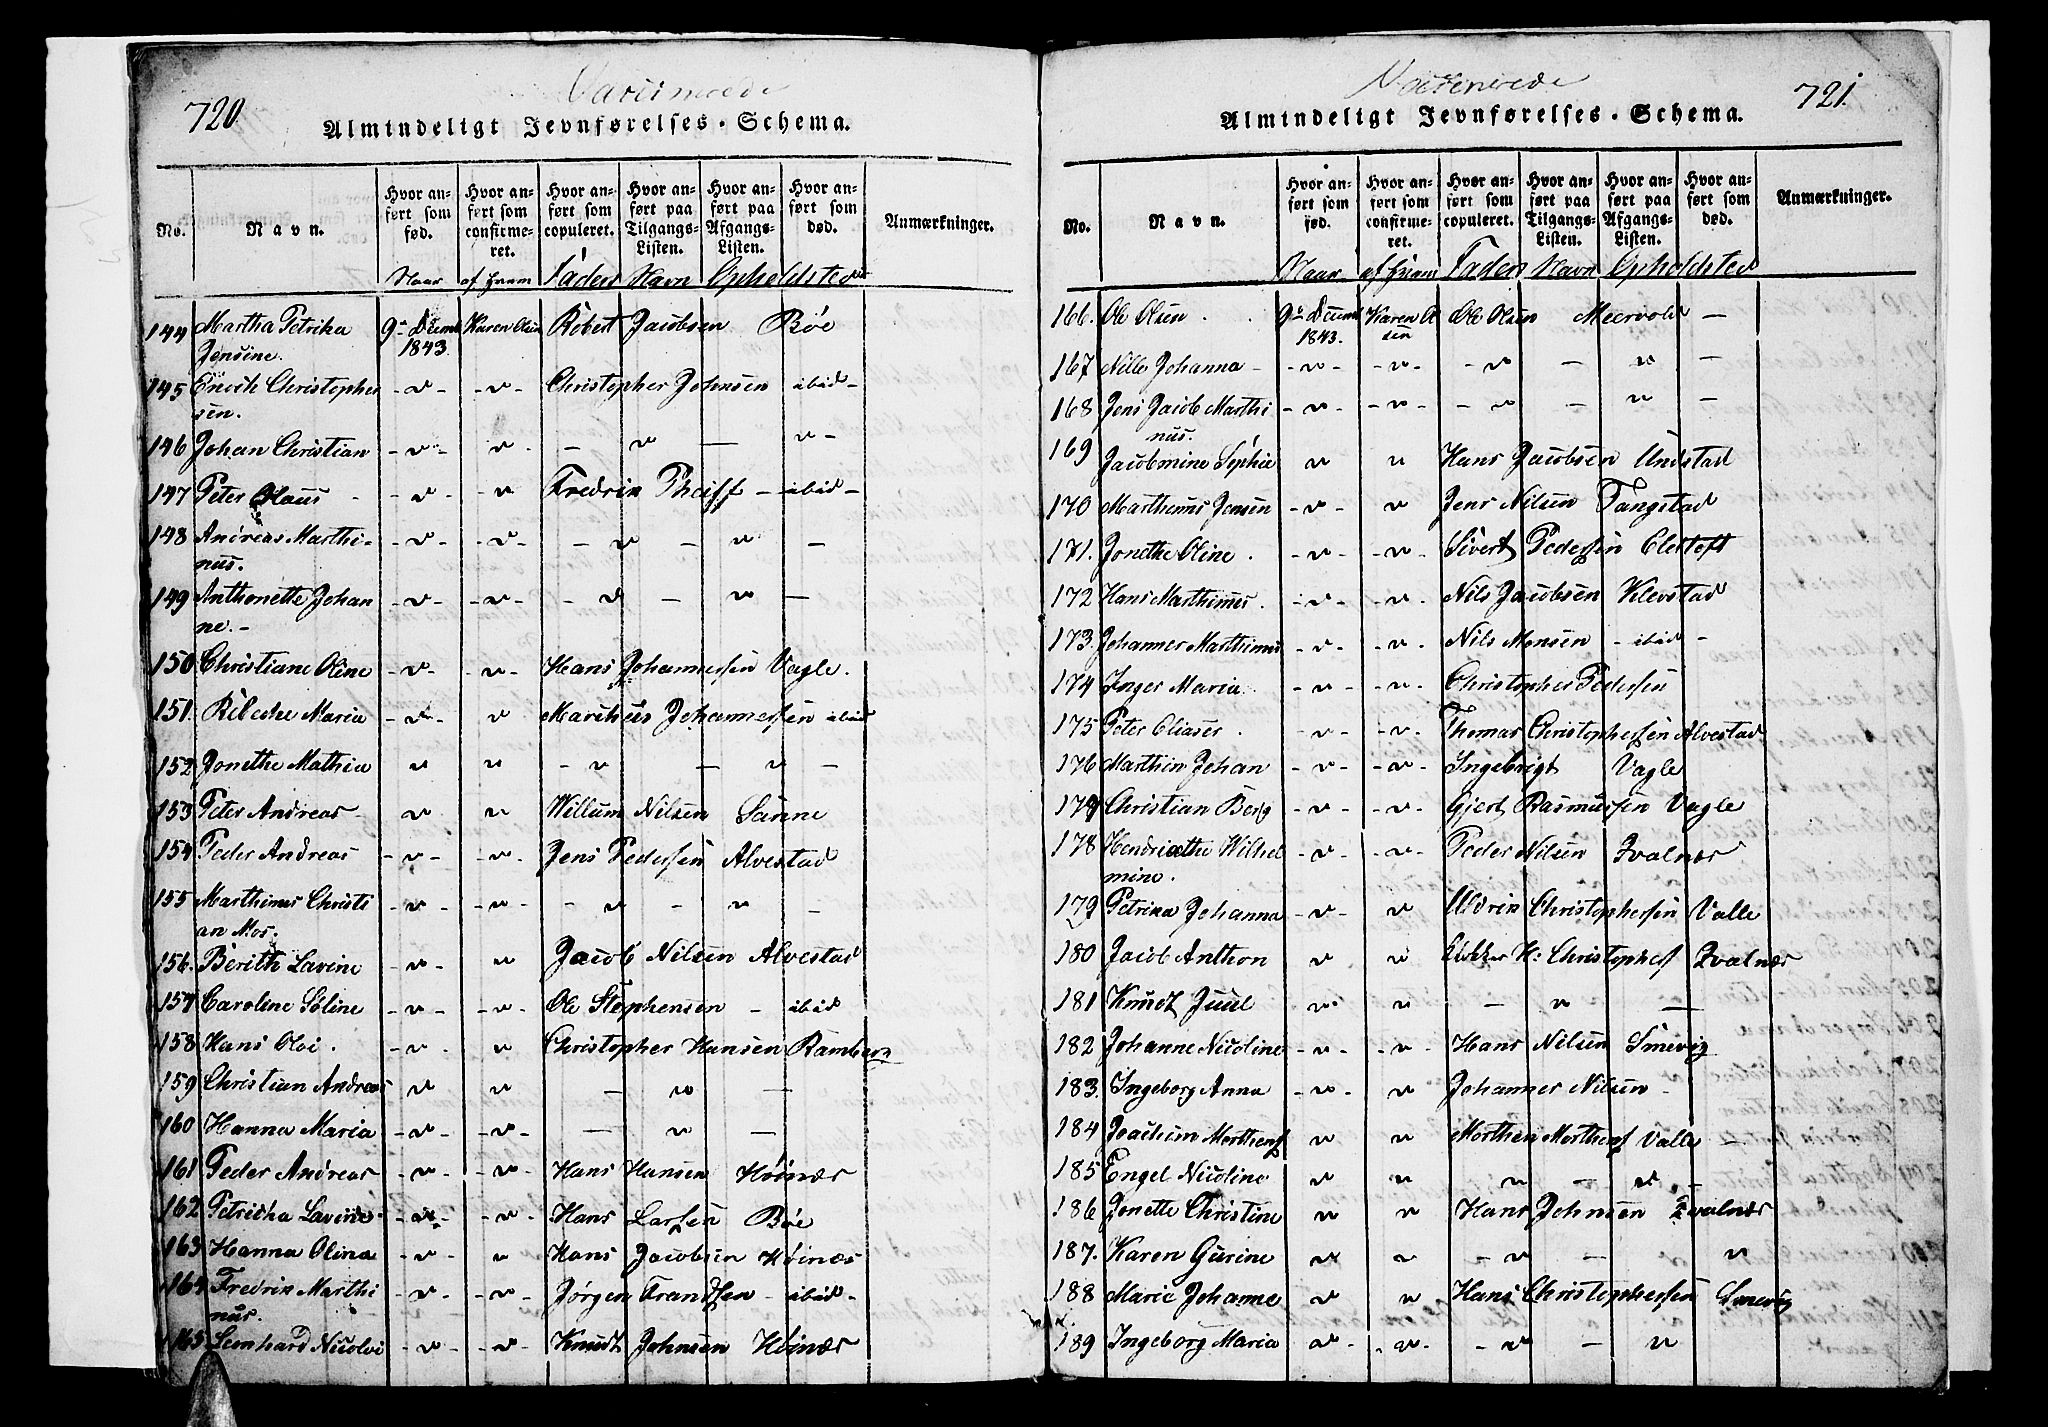 720
Vaccinerede
Almindeligt Jevnførelses-Schema.
No. Navn. Hvor anført som fød. Hvor anført som confirmeret. Hvor anført som copuleret. Hvor anført paa Tilgangs-Listen. Hvor anført paa Afgangs-Listen. Hvor anført som død. Anmærkninger.
Naar af hvem Faders Navn Opholdsted
144 Martha Petrika 9de Decemb Karen Olsen Robert Jacobsen Bøe
Jensine. 1843.
145 Enoch Christopher - v - - v - Christopher Johnsen ibid -
sen.
146 Johan Christian - v - v - v - v -
147 Peter Claus - - v - - v Fredrik Pheiff - ibid -
148 Andreas Marthi- - v - - v - - v - v -
nus.
149 Anthonette Johan - v - - v - - v - v -
ne. -
150 Christiane Oline - v - - v Hans Johannessen Vagle.
151. Ribecke Maria - v - v Marthus Johannessen ibid
152 Jonethe Mathea v v - v - v -
153 Peter Andreas - v v Willum Nilsen Sanne
154 Peder Andreas - v - - v - Jens Pedersen Alvestad
155 Marthinus Christi - v - - v - - v - v -
an Mos.
156. Berith Lavine - v - v Jacob Nilsen Alvestad
157 Caroline Soline - v - - v - Ole Stephensen - ibid
158 Hans Olai . - v - v Christopher Hansen Ramberg
159 Christian Andreas v v - v -
160 Hanna Maria - v - - v - - v -
161 Peder Andreas - v - - v - Hans Hansen Høinæs
162 Petricka Lavine - v - - v - Hans Larsen Bøe
163 Hanna Olina - v - v Hans Jacobsen Høinæs
164 Fredrik Marthi - v - - v - Jørgen Frandsen - ibid -
nus.
165 Leonhard Nicolai - v - - v - Knudt Johnsen Høinæs
721.
Vaccinerede
Almindeligt Jevnførelses-Schema.
No. Navn. Hvor anført som fød. Hvor anført som confirmeret. Hvor anført som copuleret. Hvor anført paa Tilgangs-Listen. Hvor anført paa Afgangs-Listen. Hvor anført som død. Anmærkninger.
Naar af hvem Faders Navn Opholdsted
166. Ole Olsen . . 9de Decemb Karen Ol Ole Olsen Meervold -
1843. sen
167 Nille Johanna - - v - - v - - v - v -
168 Jens Jacob Marthi - v - - v - - v - v -
nus.
169 Jacobmine Sophie v v Hans Jacobsen Undstad
170 Marthinus Jensen - v - v Jens Nilsen Tangstad
171. Jonethe Oline . - v - - v - Sivert Pedersen Cletoft
172 Hans Marthinus . - v - - v - Nils Jacobsen Klevstad
173. Johannes Marthinus - v - - v Nils Monsen - ibid -
174 Inger Maria . - v - - v - Christopher Pedersen
175 Peter Eliaser . - v - - v - Thomas Christophersen Alvestad
176 Marthin Johan - v - - v - Ingebrigt Vagle
177 Christian Berg - v - - v - Gjert Rasmussen Vagle
178 Hendriethe Wilhel - v - - v - Peder Nilsen Qvalnæs
mine.
179 Petrika Johanna - v - v Christophersen Valle
180 Jacob Anthon v v H: Christophes Qvalnæs
181 Knudt Juul v v - v -
182 Johanne Nicoline - v - - v - Hans Nilsen Smevig
183. Ingeborg Anna - v - v Johannes Nilsen -
184 Joachim Morthens v v Morthen Morthens Valle -
185 Engel Nicoline v v v - v -
186 Jonette Christine v v Hans Johnsen Qvalnæs
187. Karen Gurine v v - v - v
188 Marie Johanne v v Hans Christophersen Smevig
189 Ingeborg Maria v - - v - - v - v